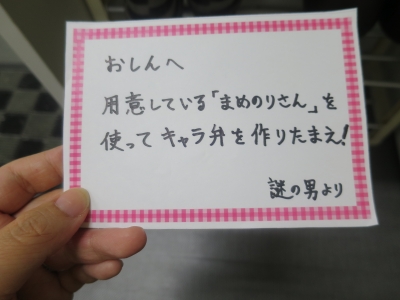 おしんへ
用意している「まめのりさん」を
使って キャラ弁を作りたまえ!
謎の男より